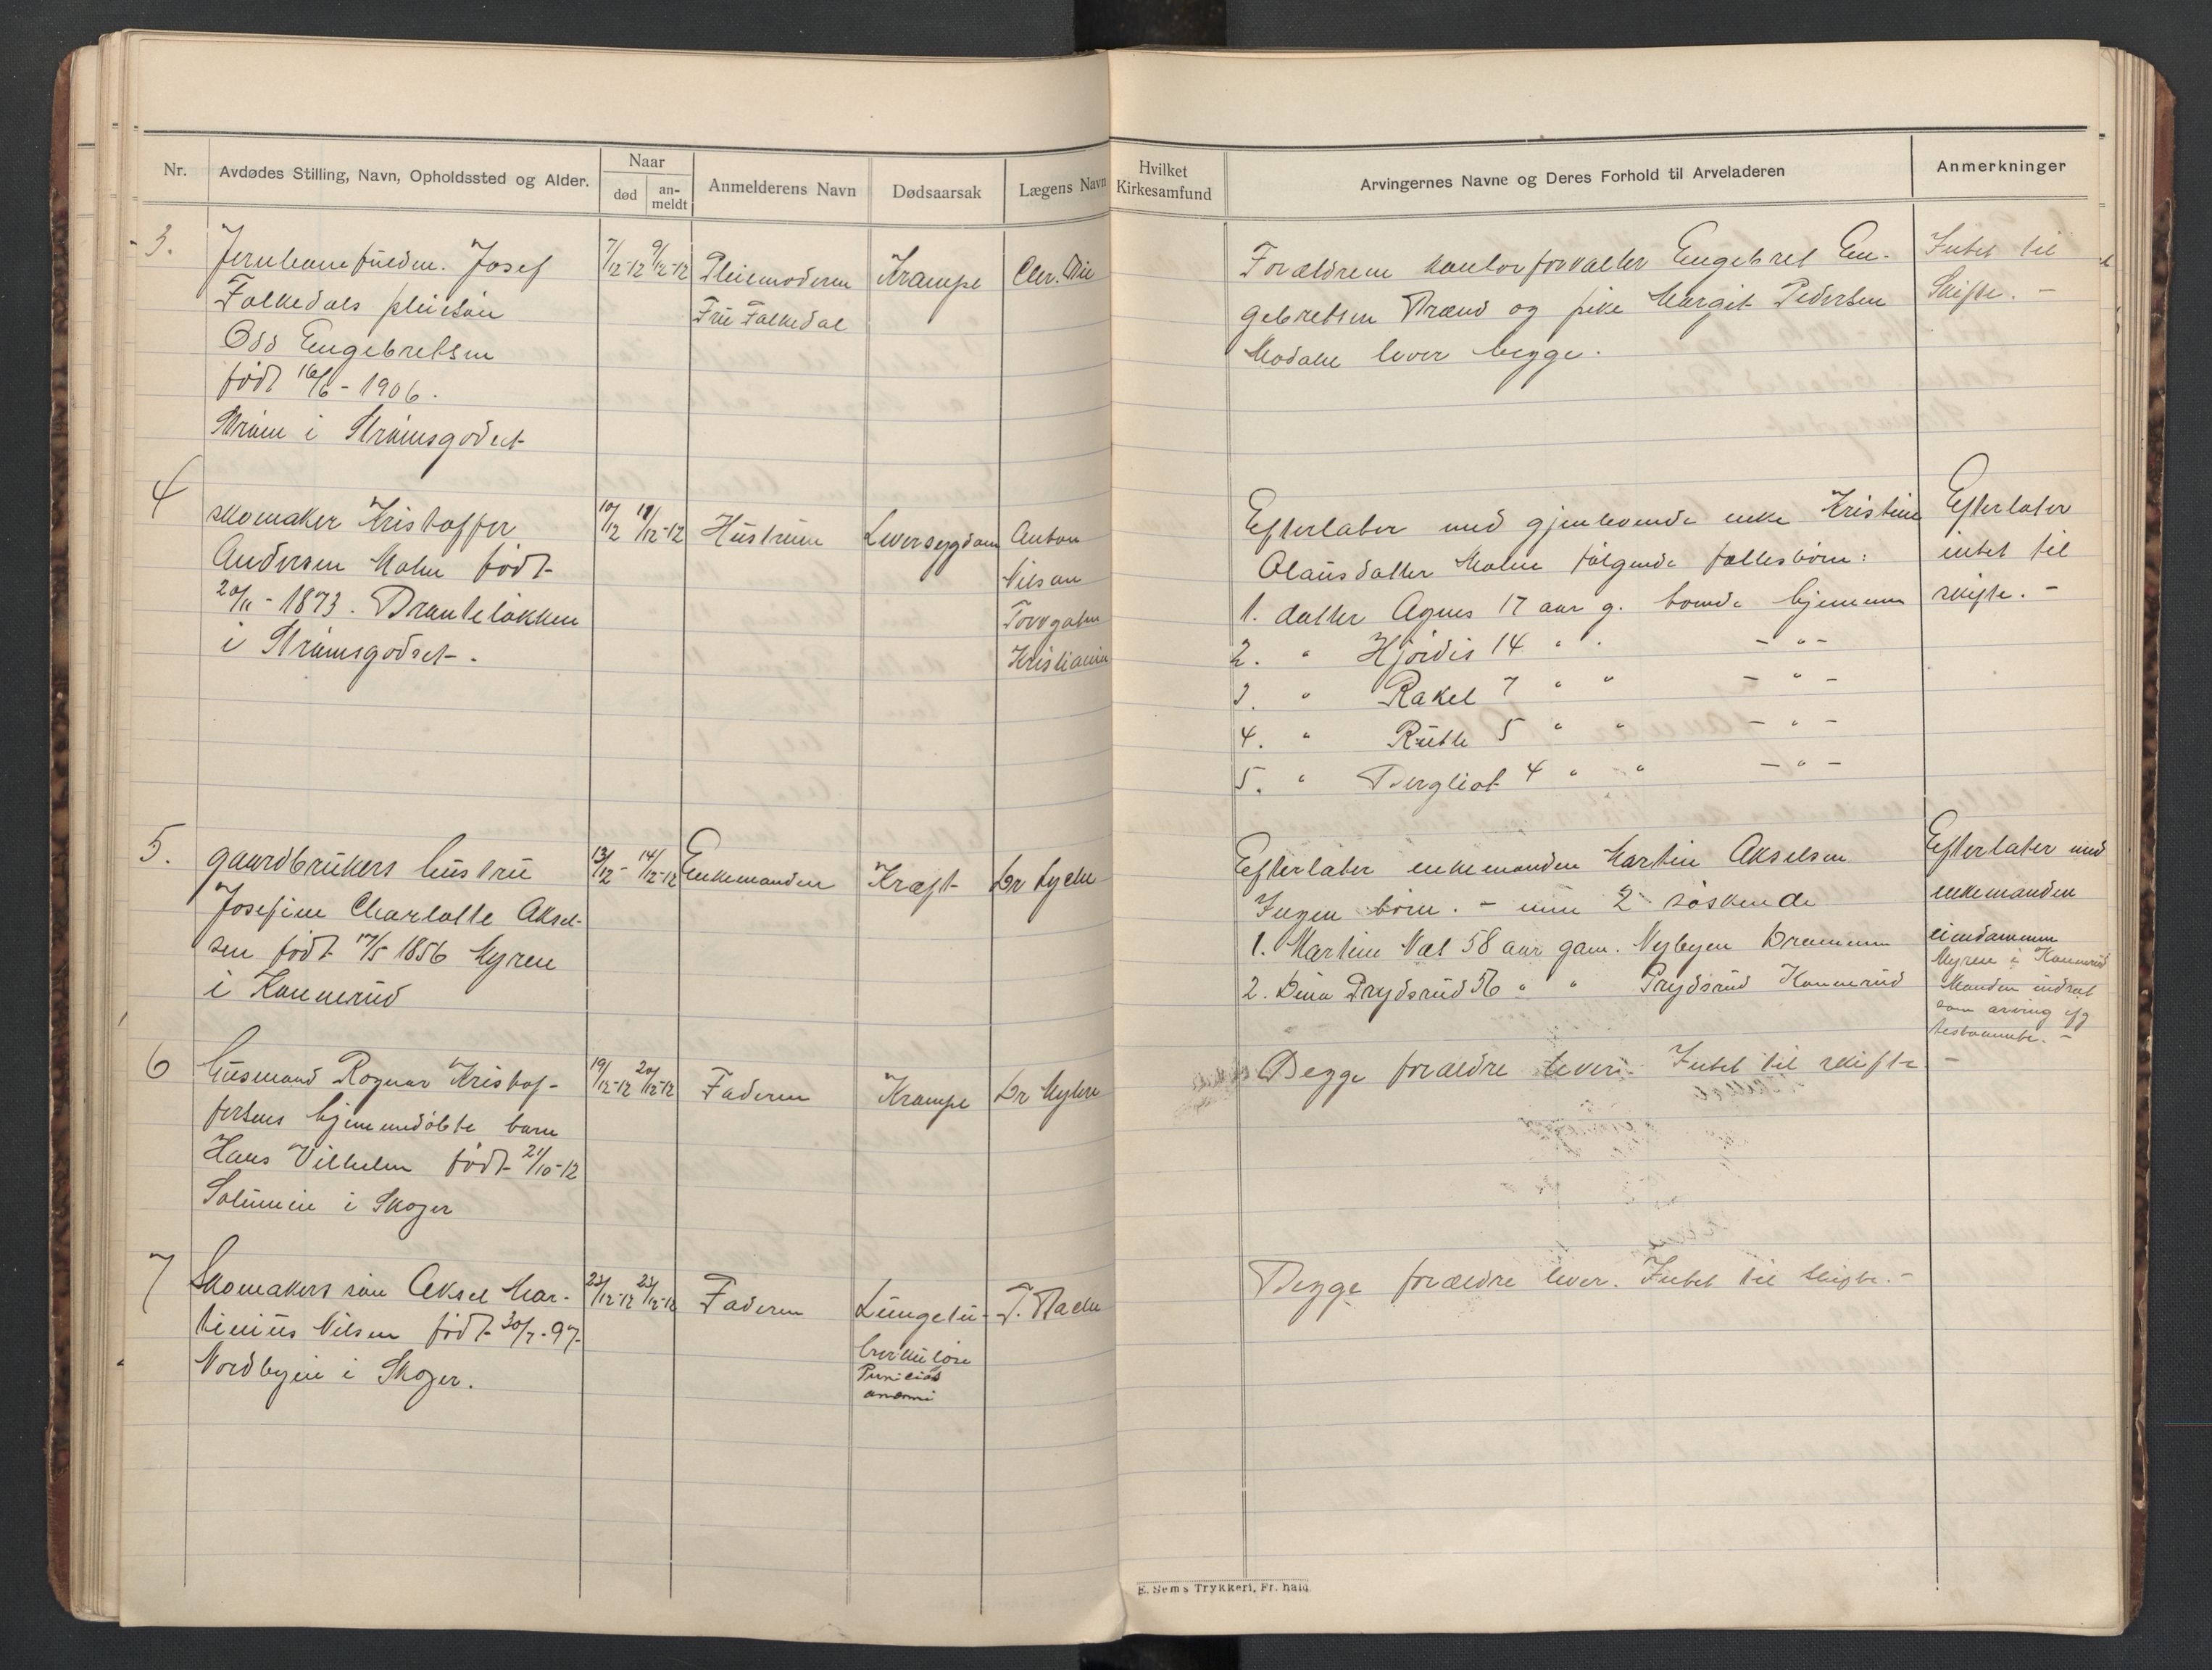 Nr.
Avdødes Stilling, Navn, Opholdssted og Alder.
Naar
død
an-
meldt
Anmelderens Navn
Dødsaarsak
Lægens Navn
Hvilket
Kirkesamfund
Arvingernes Navne og Deres Forhold til Arveladeren
Anmerkninger
3.
Josef
Falkedals pleiesøn
Odd Engebretsen
født 16/6 - 1906.
Strøm i Strømsgodset
7/12-12 9/12-12
Pleiemoderen
Fru Falkedal
Krampe
Forældrene kontorforvalter Engebret En-
gebretsen Strand og pike Margit Pedersen
lever begge.
Intet til
Skifte. -
4
skomaker Kristoffer
Andersen Malm født
20/11 - 1873. Branteløkken
i Strømsgodset.
10/12 18/12-12
Hustruen
Leversygdom
Anton
Nilsen
Torvgaten
Kristiania
Efterlater med gjenlevende enke Kristine
Olausdatter Malm følgende fællesbørn:
1. datter Agnes 17 aar g. boende hjemme
2. " Hjørdis 14 " " - " -
3. " Rakel 7 " " - " -
4. " Ruth 5 " " - " -
5. " Bergliot 4 " " - " -
Efterlater
intet til
skifte. -
5.
gaardbrukers hustru
Josefine Charlotte Aksel-
sen født 17/5 1856 Myrene
i Konnerud
13/12 - 14/12-12
Enkemanden
Kræft
Dr Lyche
Efterlater enkemanden Martin Akselsen
Ingen børn. - men 2 søskende
1. Martin Næs 58 aar gam. Nybyen Drammen
2. Dina Prydsrud 56 " " Prydsrud Konnerud
Efterlater med
enkemanden
eiendommen
Myrene i Konnerud
Manden indsat
som arving ifg
testamente. -
6
Husmand Ragnar Kristof-
fersens hjemmedøbte barn
Hans Vilhelm født 21/10-12
i Skoger
19/12-12 20/12-12
Faderen
Krampe
Dr Myhre
Begge forældre lever. Intet til skifte
-
7
Skomakers søn Aksel Mar-
tinius Nilsen født 30/7-97.
Nordbyen i Skoger.
23/12-12 23/12-12
Faderen
Lungetu-
berkulose
Perniciøs
anæmi
Begge forældre lever. Intet til skifte. -
E. Sem's Trykkeri, Fr.hald